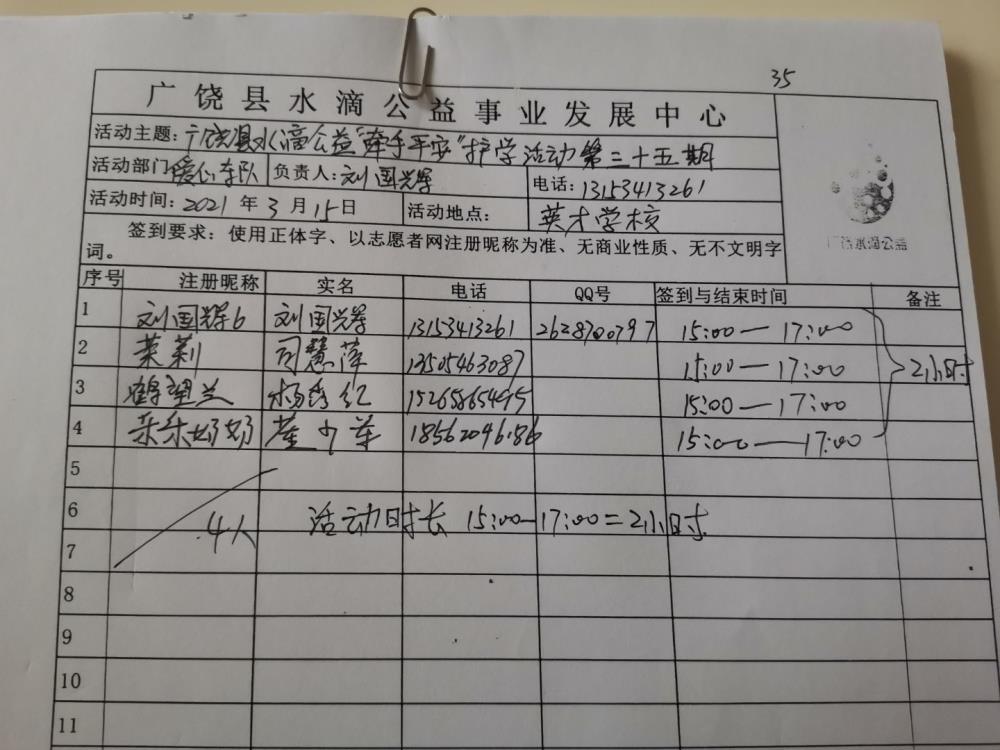 35
广饶县水滴公益事业发展中心
活动主题：广饶县水滴公益"牵手平安"护学活动第三十五期
活动部门 爱心车队 负责人：刘国辉 电话：13153413261
活动时间：2021 年 3 月 15 日 活动地点： 英才学校
广饶水滴公益
签到要求：使用正体字、以志愿者网注册昵称为准、无商业性质、无不文明字
词。
序号 注册昵称 实名 电话 QQ号 签到与结束时间 备注
1 刘国辉6 刘国辉 13153413261 2628700797 15:00—17:00
2 茉莉 司慧萍 13505463087 15:00—17:00 2小时
3 鹤望兰 杨秀红 15265865495 15:00—17:00
4 乐乐奶奶 18562046186 15:00—17:00
5
6 4人 活动时长 15:00—17:00=2小时.
7
8
9
10
11